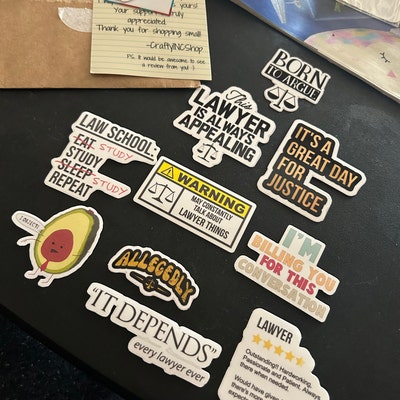 Your suppo
truly
appreciated.
Thank you for shopping small!
-CraftyINCShop
P.S. It would be awesome to see
a review from you :)
BORN
TO ARGUE
This
LAWYER
IS ALWAYS
APPEALING
LAW SCHOOL:
EAT STUDY
STUDY
SLEEP STUDY
REPEAT
IT'S A
GREAT DAY
FOR
JUSTICE
WARNING
MAY CONSTANTLY
TALK ABOUT
LAWYER THINGS
I OBJECT!
ALLEGEDLY
I'M
BILLING YOU
FOR THIS
CONVERSATION
"IT DEPENDS"
every lawyer ever
LAWYER
Outstanding!! Hardworking,
Passionate and Patient. Always
there when needed.
Would have given
there's more